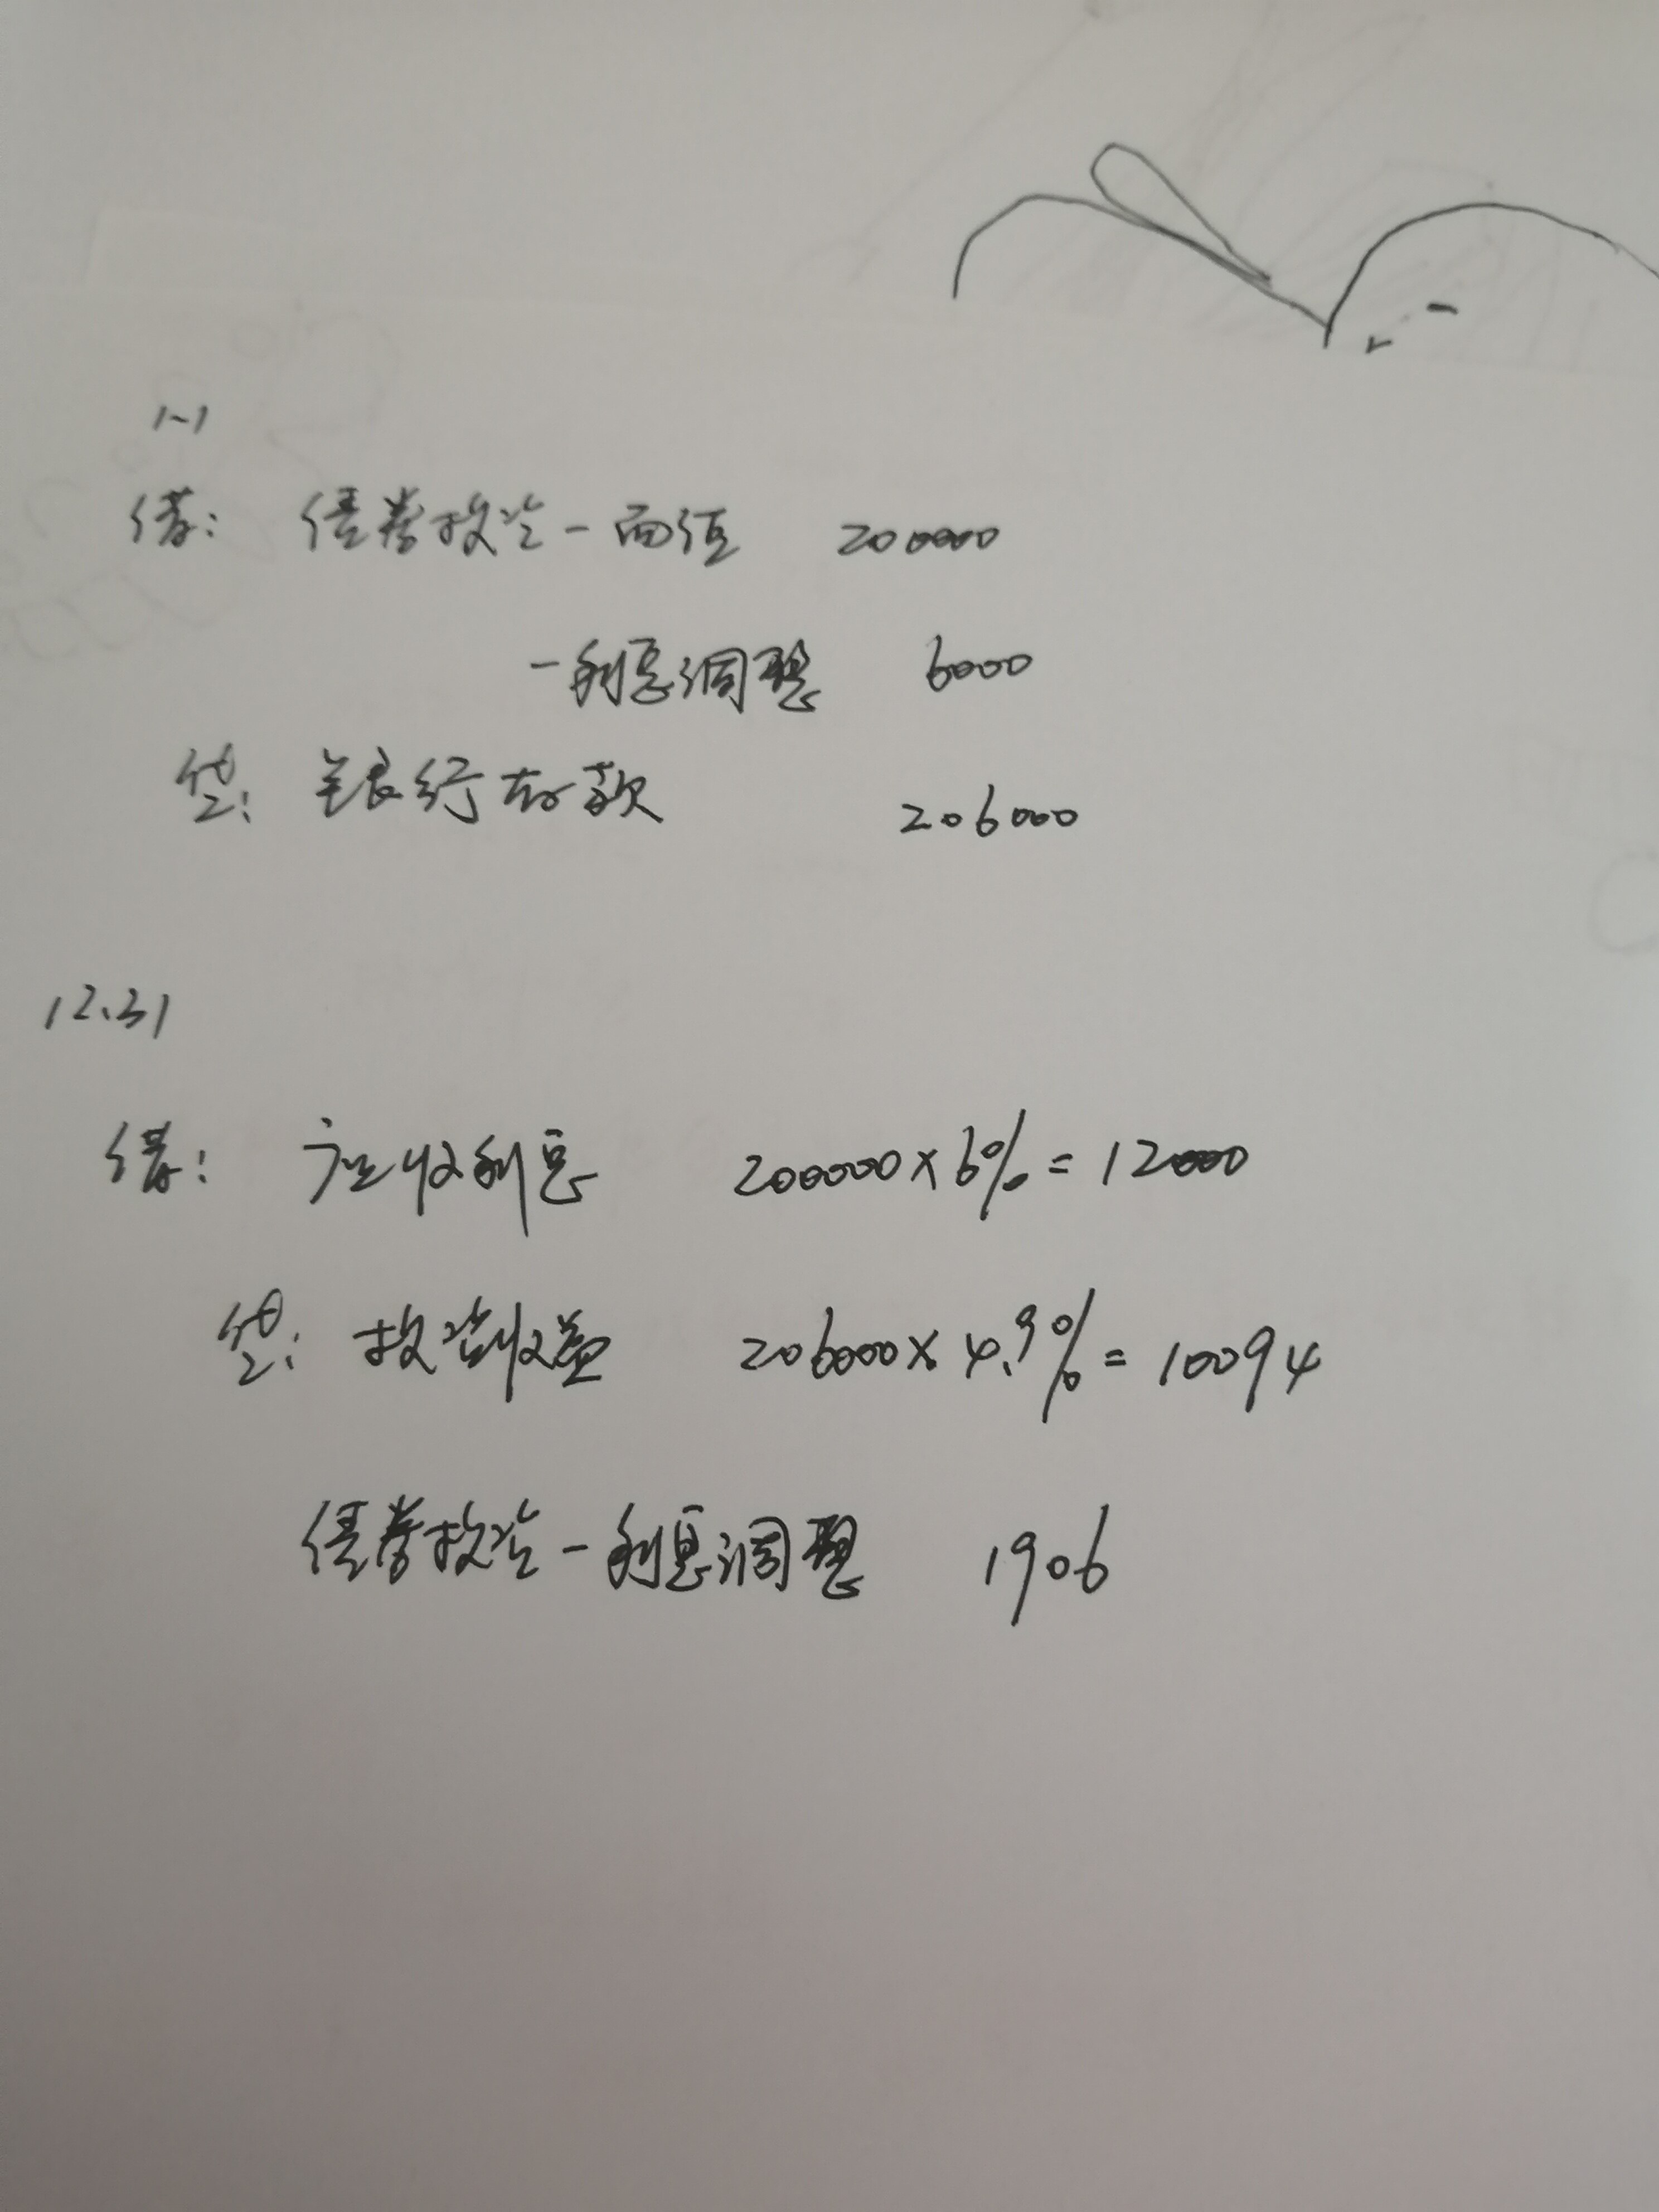 1-1
借： 债券投资-面值 200000
-利息调整 6000
贷： 银行存款 206000
12.31
借： 应收利息 200000×6%=12000
贷： 投资收益 206000×4.9%=10094
债券投资-利息调整 1906